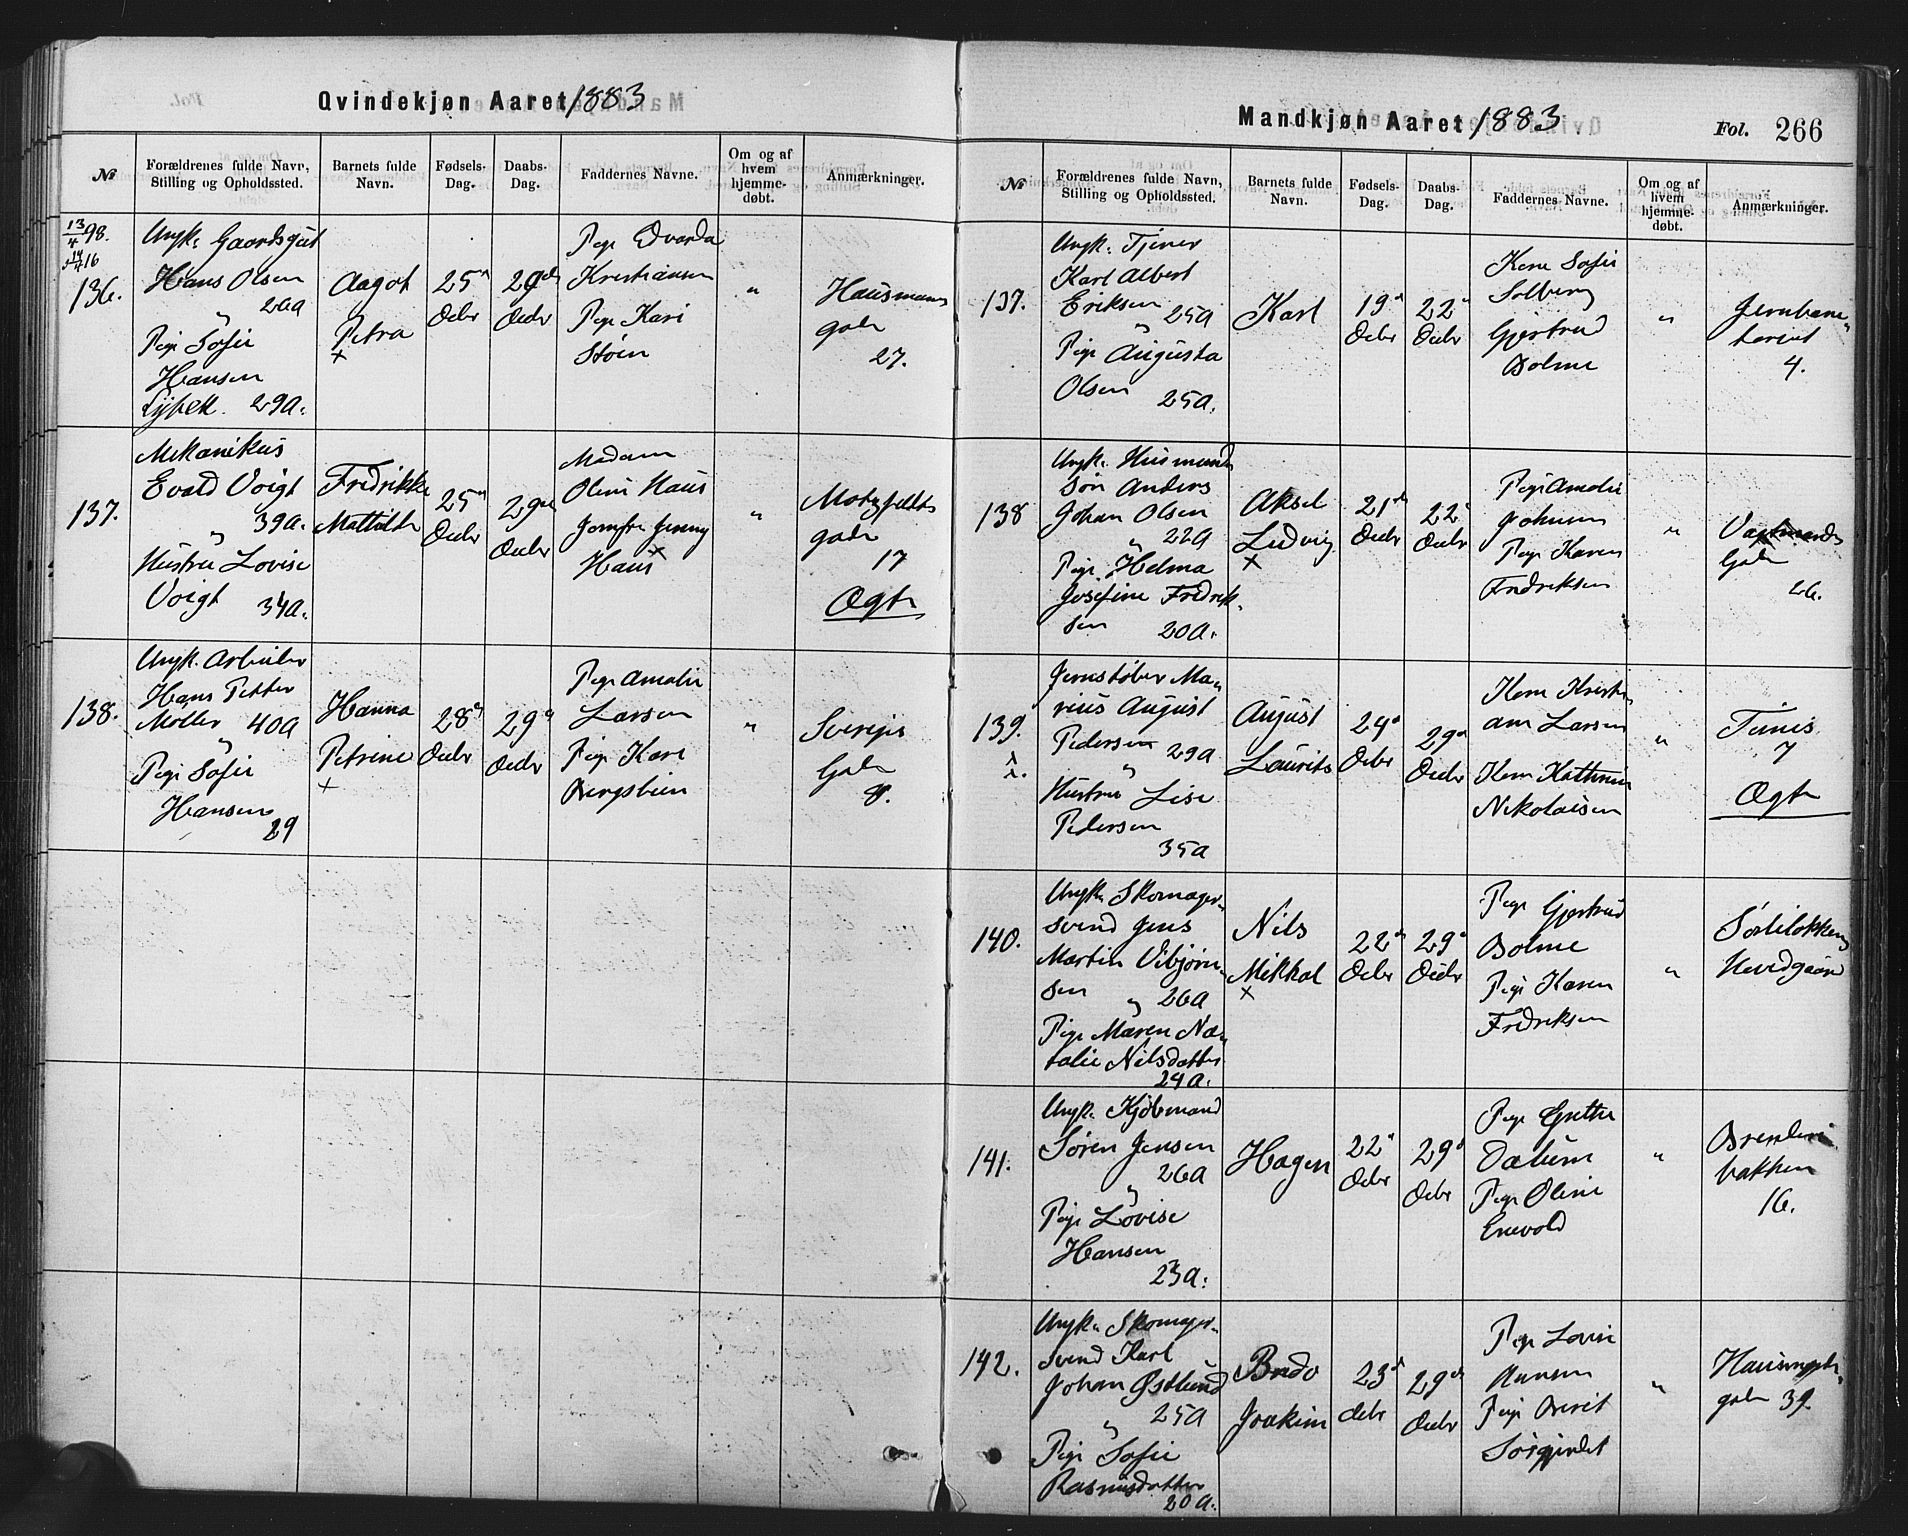 Qvindekjøn Aaret 1883
№
Forældrenes fulde Navn,
Stilling og Opholdssted.
Barnets fulde
Navn.
Fødsels-
Dag.
Daabs-
Dag.
Faddernes Navne.
Om og af
hvem
hjemme-
døbt.
Anmærkninger.
13/4 98.
136.
Ungk. Gaardsgut
Hans Olsen
26 a
"
Pige Sofie
Hansen
29 a.
Aagot
Petra
×
25
Decbr
29de
Decbr
Pige
Kristiansen
Pige Kari
Støen
"
Hausmanns
gade
27.
137.
Mekanikus
Evald Voigt
39 a.
"
Hustru Lovise
Voigt 34 a.
Fredrikke
Mathilde
25
Decbr
29de
Decbr
Madam
Oline Haus
Jomfru Jenny
Haus
"
Motzfeldts
gade
17
Ægte
138.
Ungk. Arbeider
Hans Petter
Møller 40 a
"
Pige Sofie
Hansen
29
Hanna
Petrine
×
28
Decbr
29
Decbr
Pige Amalie
Larsen
Pige Kari
"
Sverres
Gade
8.
Mandkjøn Aaret 1883
Fol. 266
№
Forældrenes fulde Navn,
Stilling og Opholdssted.
Barnets fulde
Navn.
Fødsels-
Dag.
Daabs-
Dag.
Faddernes Navne.
Om og af
hvem
hjemme-
døbt.
Anmærkninger.
137.
Ungk. Tjener
Karl Albert
Eriksen 25 a
"
Pige Augusta
Olsen 25 a.
Karl
19
Decbr
22
Decbr
Kone Sofie
Solberg
Gjertrud
Bolme
"
Jernbane
torvet
4.
138
Ungk. Husmands
søn Anders
Johan Olsen
22 a
"
Pige Helma
Josefine Fredrik-
sen 20 a.
Aksel
Ludvig
×
21
Decbr
22
Decbr
Pige Amalie
Johnsen
Pige Karen
Fredriksen
"
Gade
26.
139.
Jernstøber Ma-
rius August
Pedersen 29 a
"
Hustru Lise
Pedersen
35 a
August
Laurits
24
Decbr
29
Decbr
Kone Kristi-
ane Larsen
Kone Kathrine
Nikolaisen
"
7
Ægte
140.
Ungk. Skomager-
svend Jens
Martin Vibjørn-
sen " 26 a
Pige Maren Na-
talie Nilsdatter
24 a.
Nils
Mikkal
×
22
Decbr
29
Decbr
Pige Gjertrud
Bolme
Pige Karen
Fredriksen
"
Sørliløkkens
Hovedgaard
141.
Ungk. Kjøbmand
Søren Jensen
26 a
"
Pige Lovise
Hansen
23 a.
Hagen
22
Decbr
29
Decbr
Pige Grethe
Dalum
Pige Oline
Enevold
"
bakken
16.
142.
Ungk. Skomager-
svend Karl
Johan Østlund
25 a
"
Pige Sofie
Rasmusdatter
20 a.
Bredo
Joakim
23
Decbr
29de
Decbr
Pige Lovise
Hansen
Pige Berit
"
gade 39.